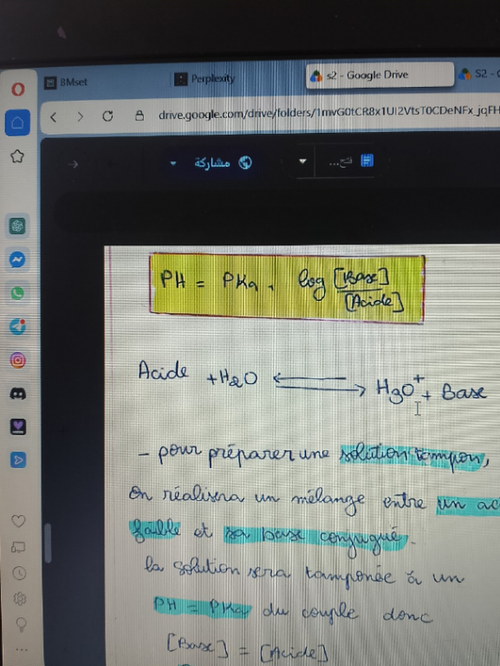 8Mset
Perplexity
s2 - Google Drive
S2 -
drive.google.com/drive/folders/1mvG0tCR8x1UI2VtsT0CDeNFx_jqFH
مشاركة
PH = PKa + log [Base]
[Acide]
Acide + H2O ⇌ H3O+ + Base
- pour préparer une solution tampon,
On réalisera un mélange entre un ac
faible et sa base conjugué.
la solution sera tamponée à un
PH = PKa du couple donc
[Base] = [Acide]